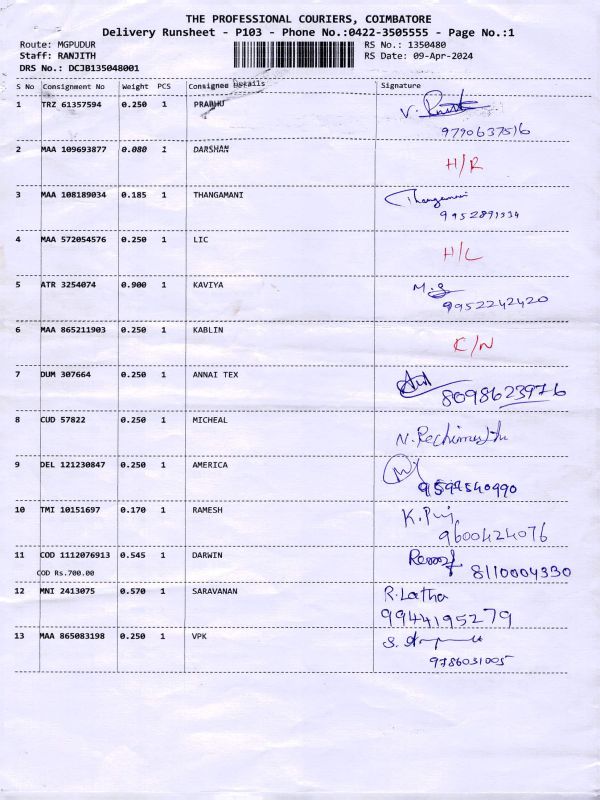 THE PROFESSIONAL COURIERS, COIMBATORE
Delivery Runsheet - P103 - Phone No.:0422-3505555 - Page No.:1
Route: MGPUDUR RS No.: 1350480
Staff: RANJITH RS Date: 09-Apr-2024
DRS No.: DCJB135048001
S No Consignment No Weight PCS Consignee Details Signature
1 TRZ 61357594 0.250 1 PRABHU V.
9790637516
2 MAA 109693877 0.080 1 DARSHAN H/R
3 MAA 108189034 0.185 1 THANGAMANI Thangamani
9952891334
4 MAA 572054576 0.250 1 LIC H/L
5 ATR 3254074 0.900 1 KAVIYA M.
9952242420
6 MAA 865211903 0.250 1 KABLIN C/N
7 DUM 307664 0.250 1 ANNAI TEX
8098623976
8 CUD 57822 0.250 1 MICHEAL N.
9 DEL 121230847 0.250 1 AMERICA
9597540990
10 TMI 10151697 0.170 1 RAMESH K.
9600424076
11 COD 1112076913 0.545 1 DARWIN
COD Rs.700.00 8110004330
12 MNI 2413075 0.570 1 SARAVANAN R.Latha
9944195279
13 MAA 865083198 0.250 1 VPK S.
9786031005